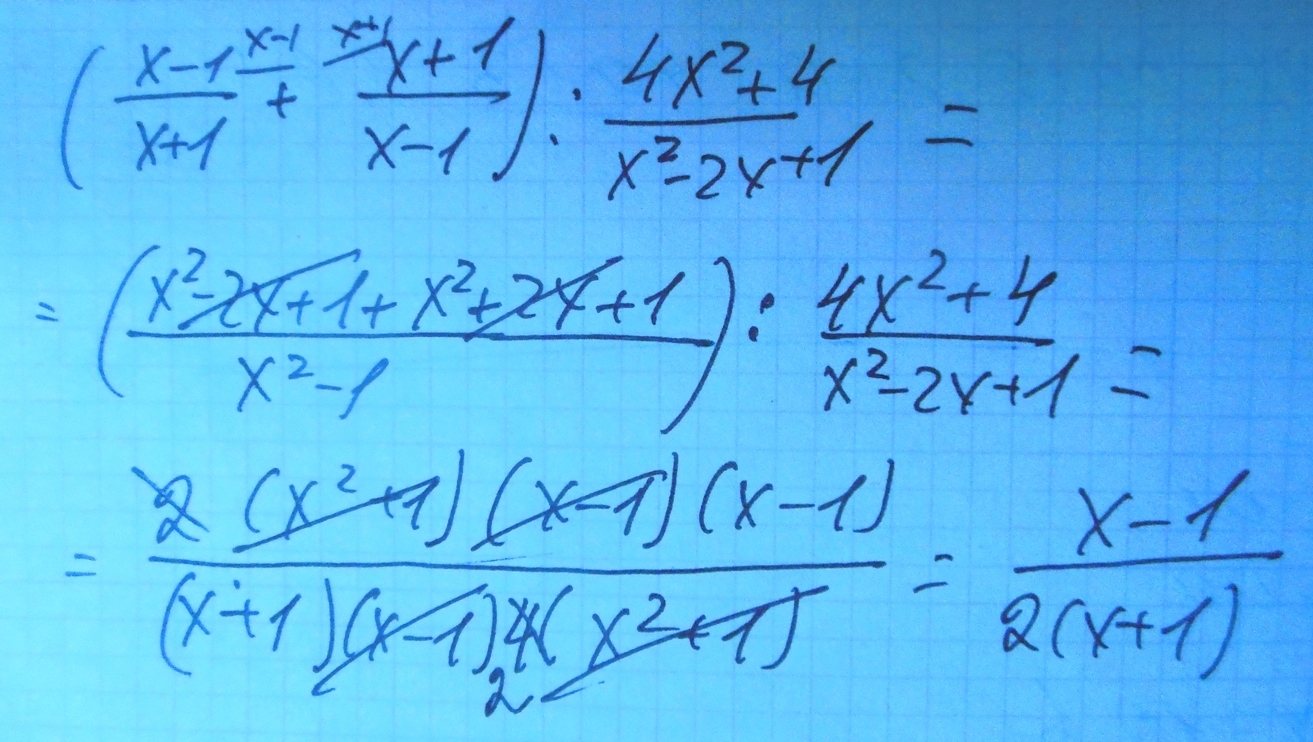 ( x-1/x+1 ^x-1 + ^x+1 x+1/x-1 ) : 4x²+4/x²-2x+1 =
= ( x²-2x+1+x²+2x+1/x²-1 ) : 4x²+4/x²-2x+1 =
= 2(x²+1)(x-1)(x-1)/(x+1)(x-1)4(x²+1) 2 = x-1/2(x+1)